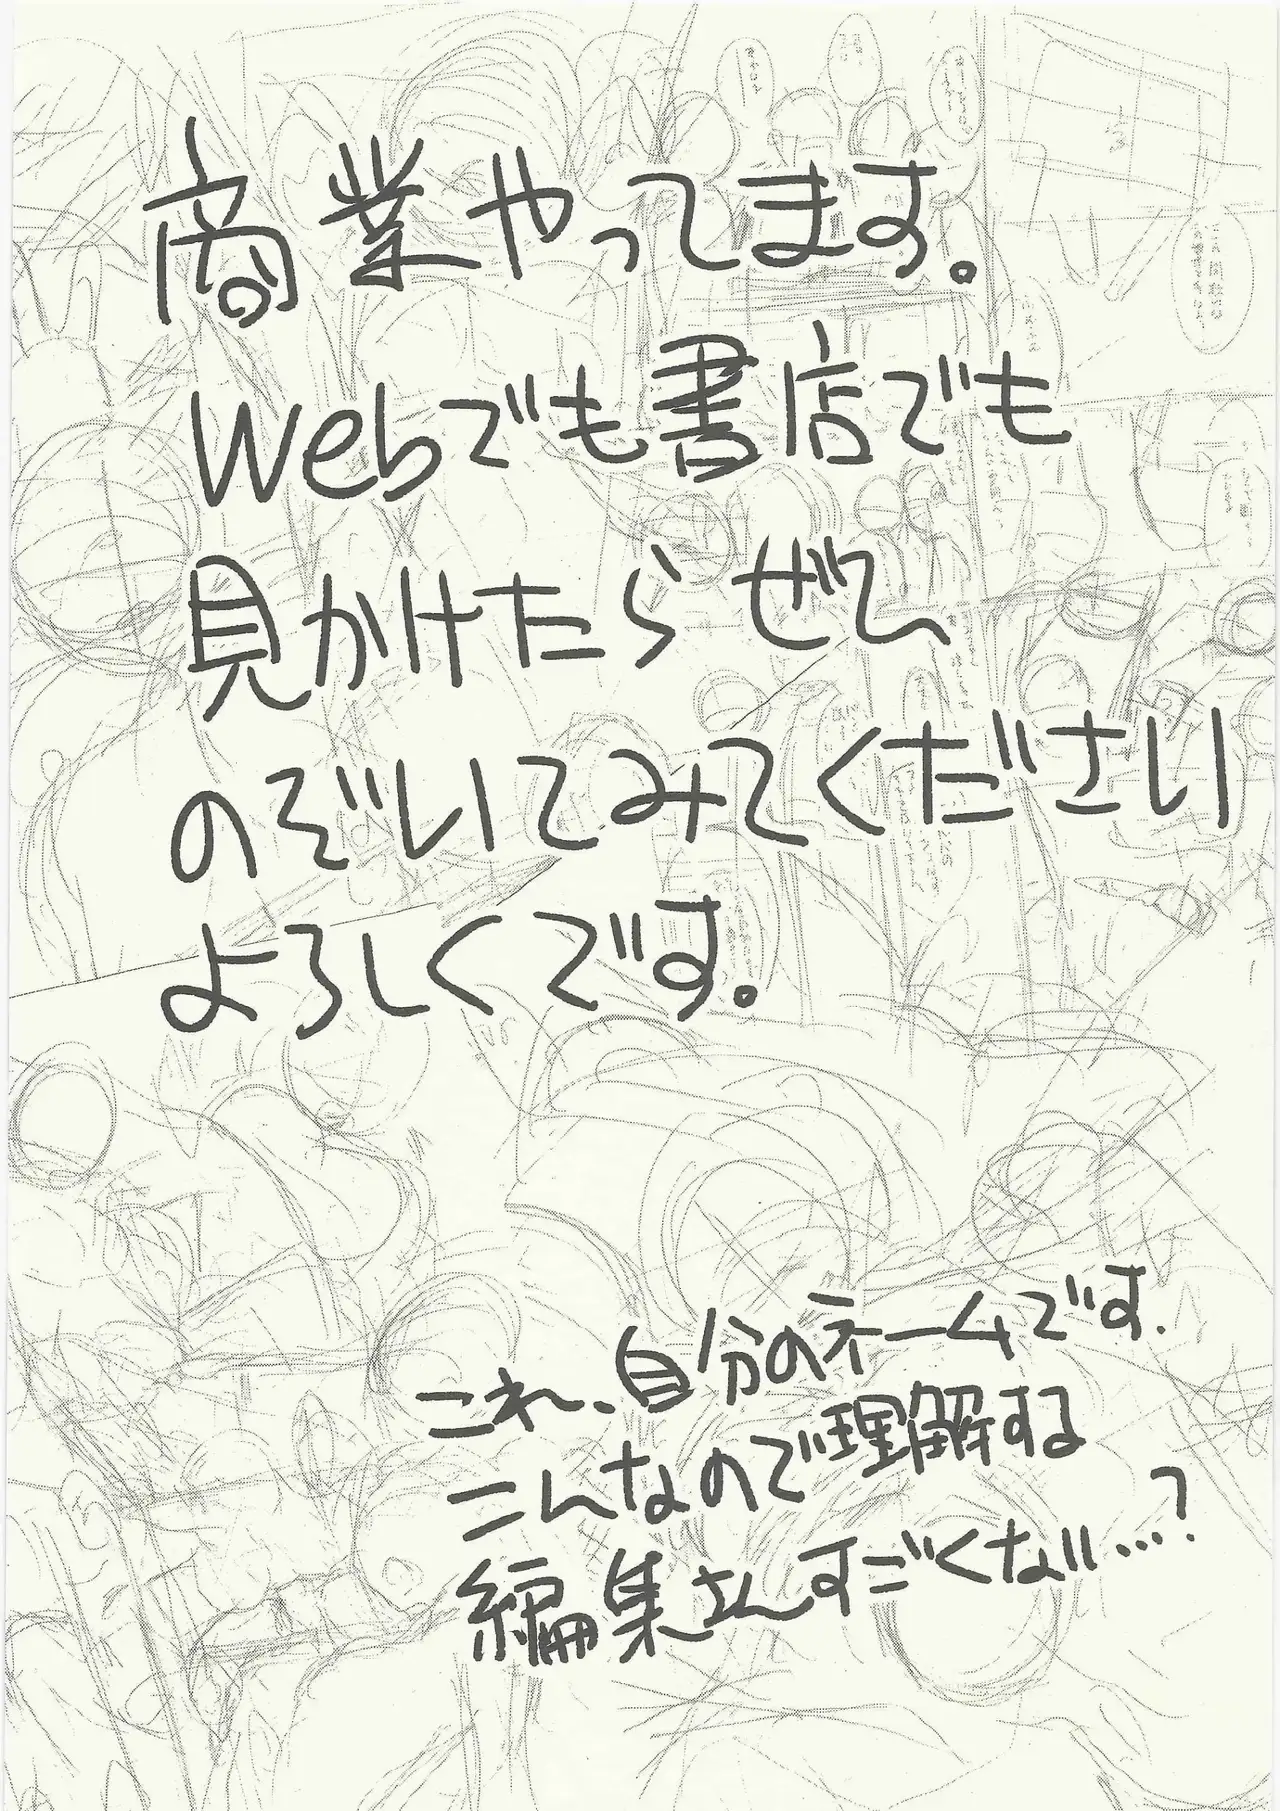 商業やってます。
Webでも書店でも
見かけたらぜひ
のぞいてみてください
よろしくです。
これ、自分のネームです.
こんなので理解する
編集さんすごくない…?